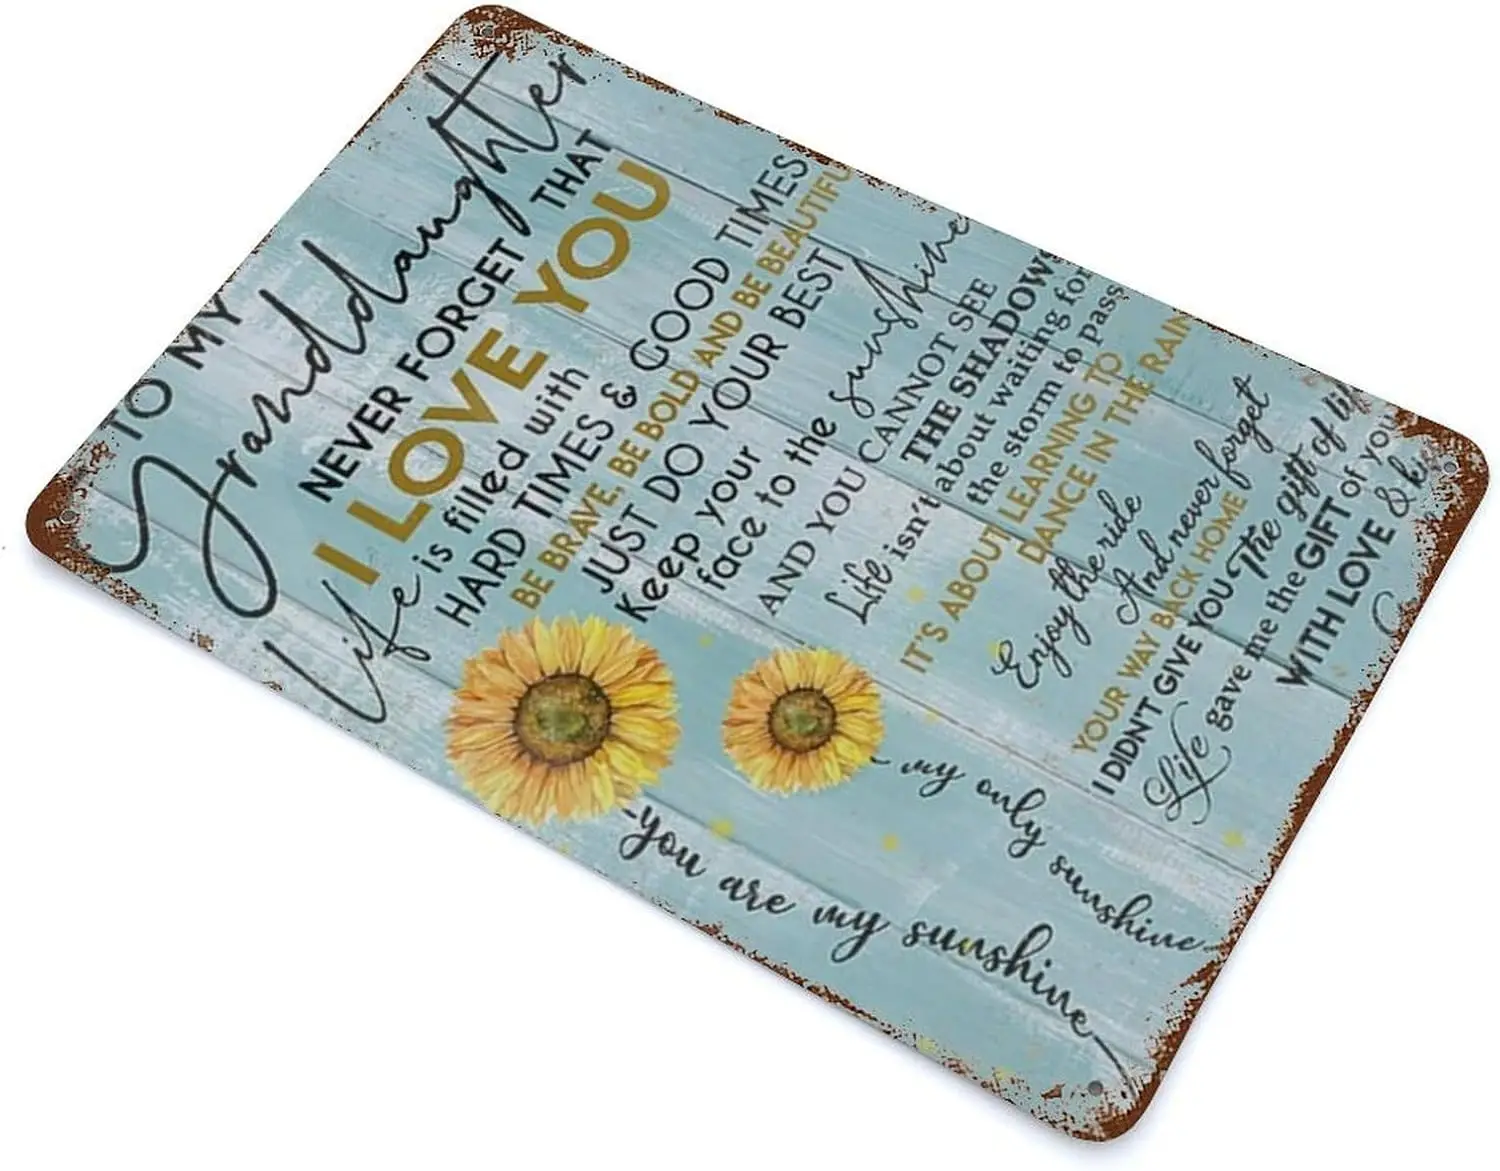 TO MY
Granddaughter
NEVER FORGET THAT
I LOVE YOU
Life is filled with
HARD TIMES & GOOD TIMES
BE BRAVE, BE BOLD AND BE BEAUTIFU
JUST DO YOUR BEST
Keep your
face to the sunshine
AND YOU CANNOT SEE
THE SHADOWS
Life isn't about waiting for
the storm to pass
IT'S ABOUT LEARNING TO
DANCE IN THE RAIN
Enjoy the ride
And never forget
YOUR WAY BACK HOME
I DIDN'T GIVE YOU The gift of lif
Life gave me the GIFT of you
WITH LOVE & ki
-you are my sunshine
- my only sunshine